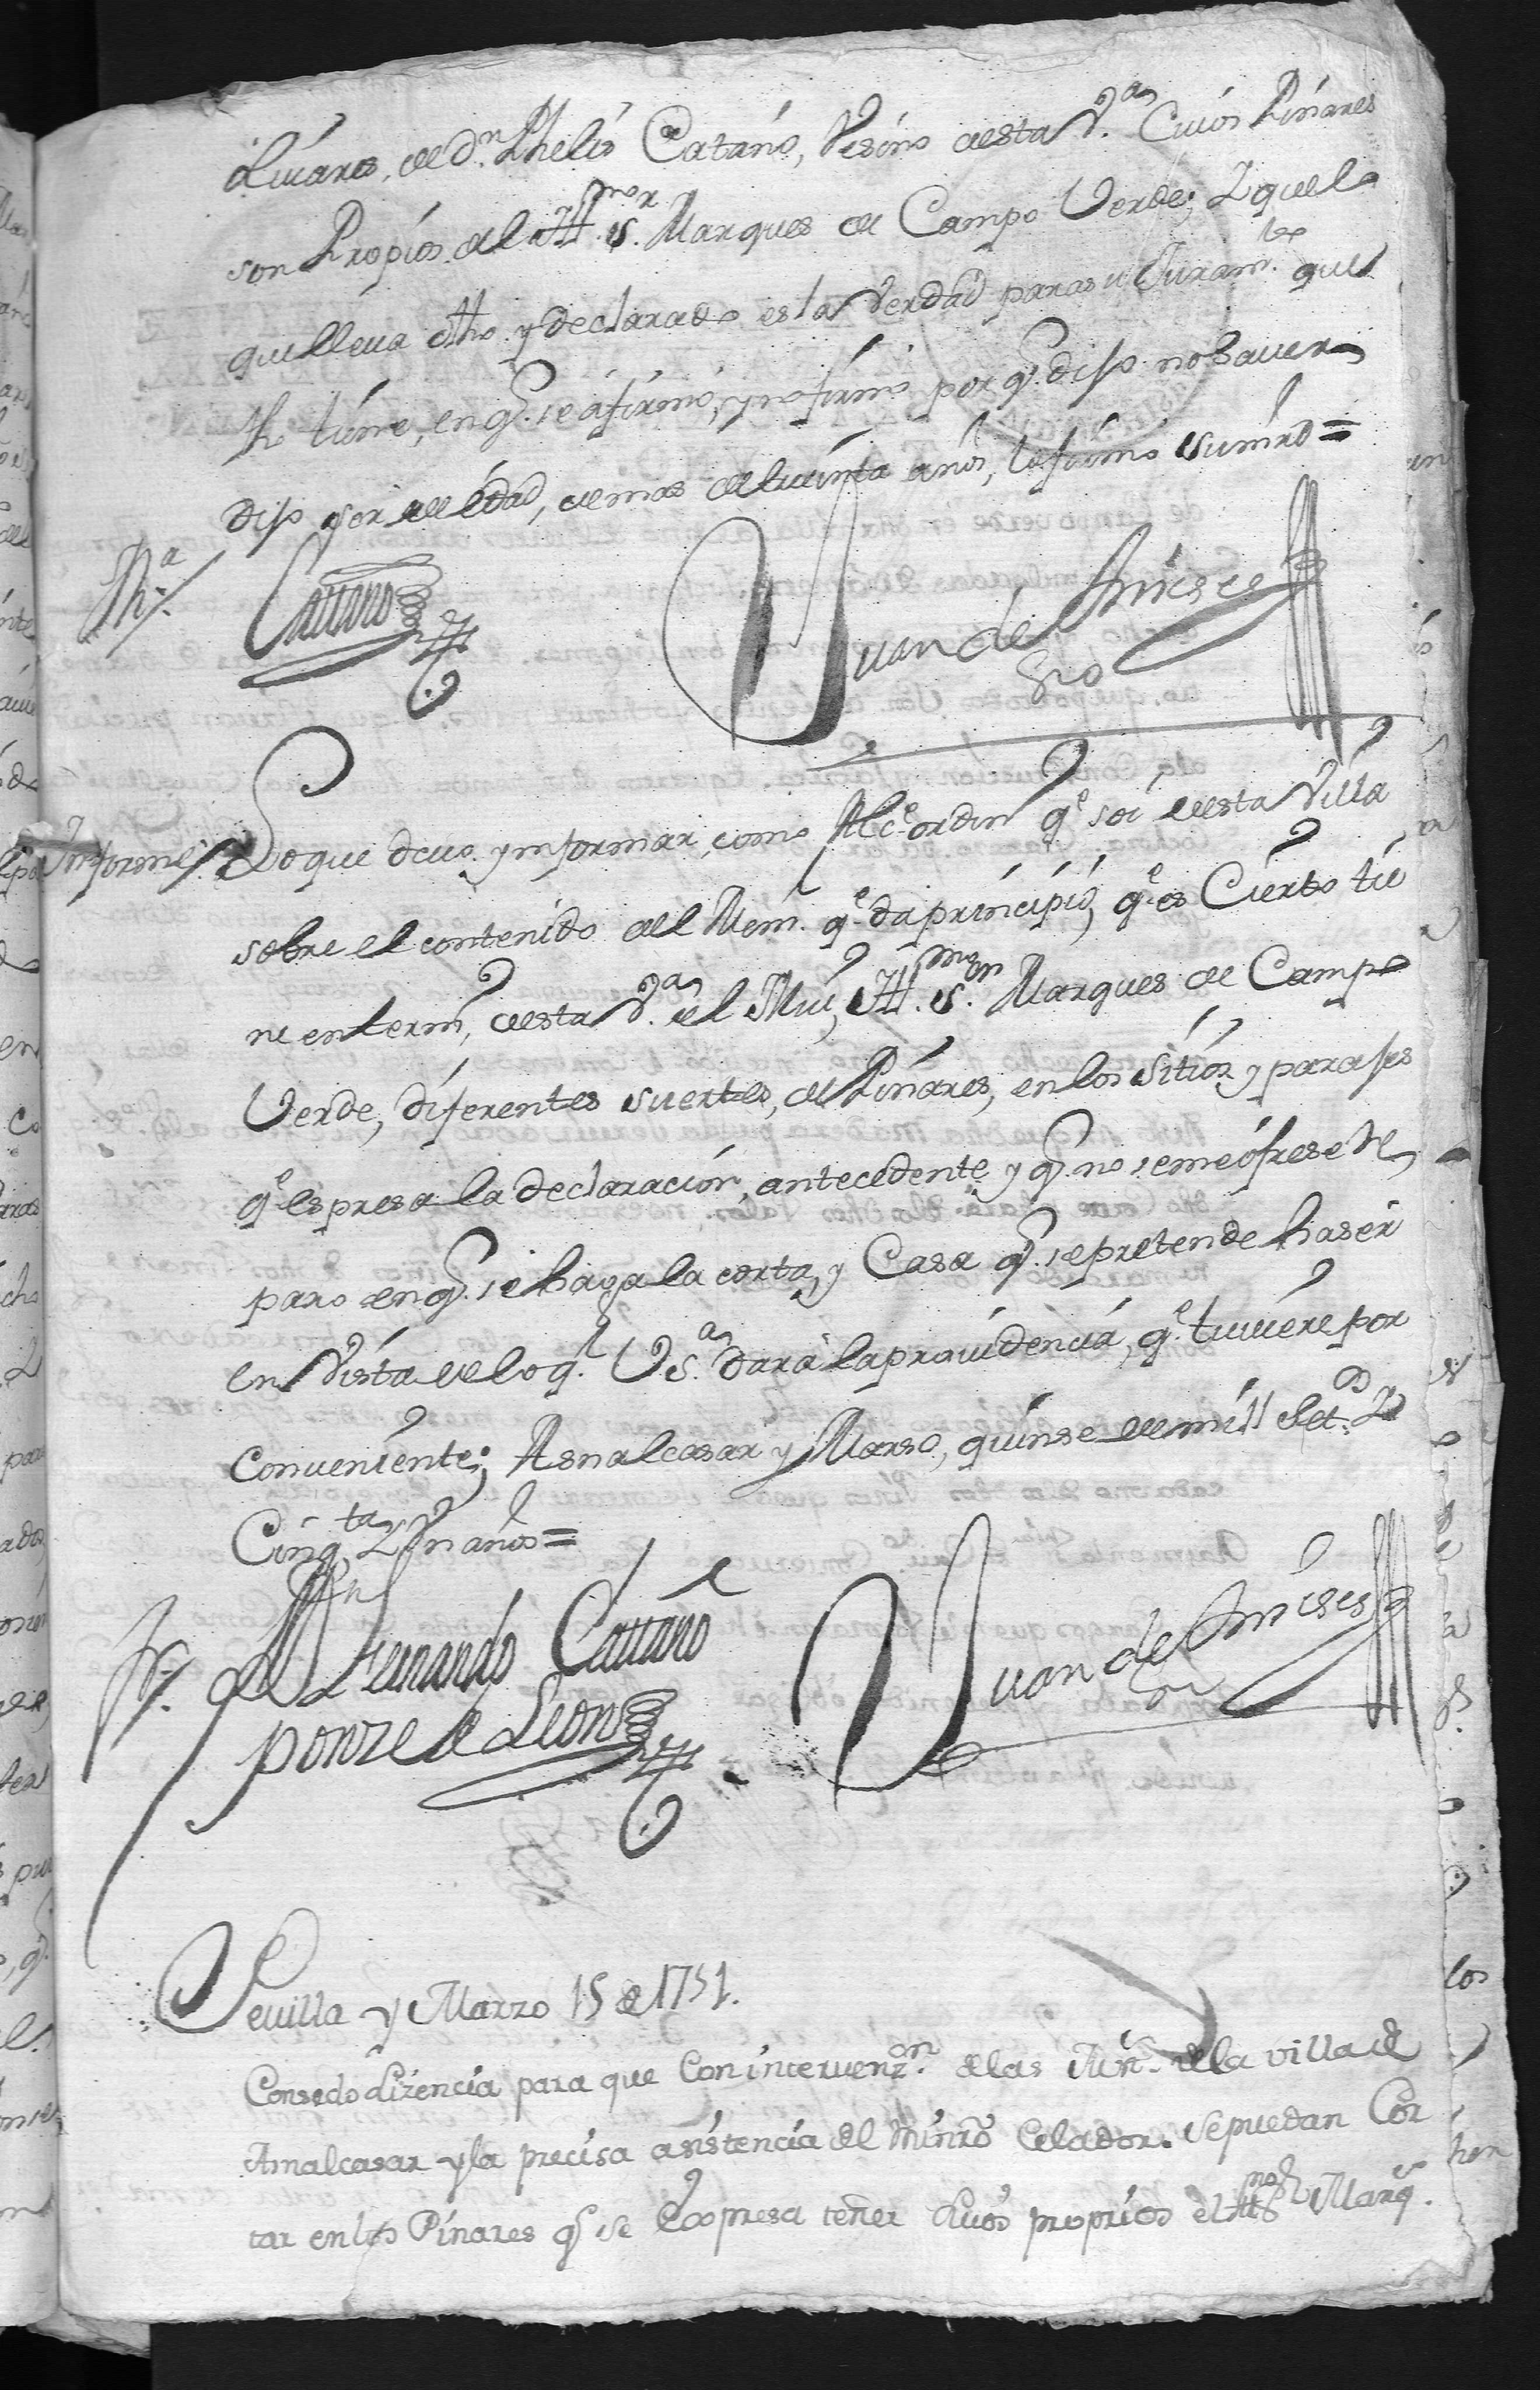 oliuares, de Dn. Phelis Catano, Vesino desta Va. Cuios Pinares
son Propios del Illmo. sr. Marques de Campo Verde; Y que lo
que lleua dho. y declarado es la Verdad para su Juramto. que
fho tiene, en q. se afirmó, y no firmó por q. dijo no sauer
dijo ser de edad, de mas de treinta años, lo firmo su mrd =
Cattano
Juan de
Informe Lo que deuo ynformar, como Alce. ordin. qe. soi desta Villa
sobre el contenido del Mem. qe. da principio, qe. es Cierto tie
ne en term. desta Va. el Mui Illmo. sr. Marques de Campo
Verde, diferentes suertes, de Pinares, en los Sitios y parajes
qe. espresa la declaracion, antecedente y q. no se me ofrese Re
paro en q. se haga la corta, y Casa q. se pretende haser
en Vista de lo q. V sa. dará la prouidencia, qe. tuuiere por
conueniente; Asnalcasar y Marso, quinse de mill Set. Y
Cinqta. Y Vn años =
Fernando Cattano
ponze de Leon
Juan de
Seuilla y Marzo 15 de 1751.
Consedo lizencia para que con interuenzon. de las Justs. de la villa de
Asnalcasar y la precisa asistencia del Minro Celador. se puedan Cor
tar en los Pinares q se Expresa tener suos proprios el Illmo Sr Marqs.